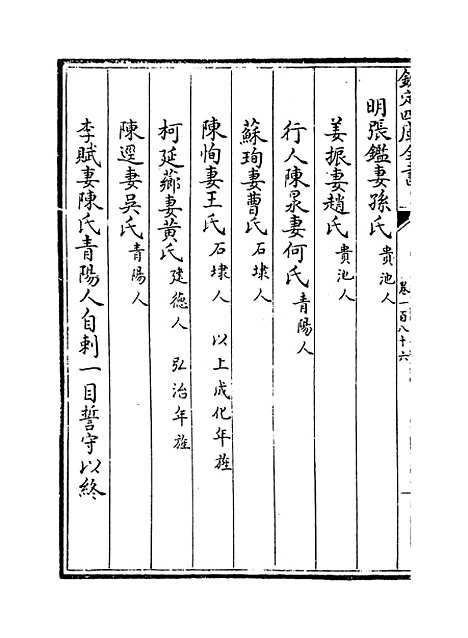 欽定四庫全書
卷一百八十六
明張鑑妻孫氏貴池人
姜振妻趙氏貴池人
行人陳杲妻何氏青陽人
蘇珣妻曹氏石埭人
陳恂妻王氏石埭人 以上成化年旌
柯延薌妻黃氏建德人 弘治年旌
陳𨗿妻吳氏青陽人
李賦妻陳氏青陽人自刺一目誓守以終